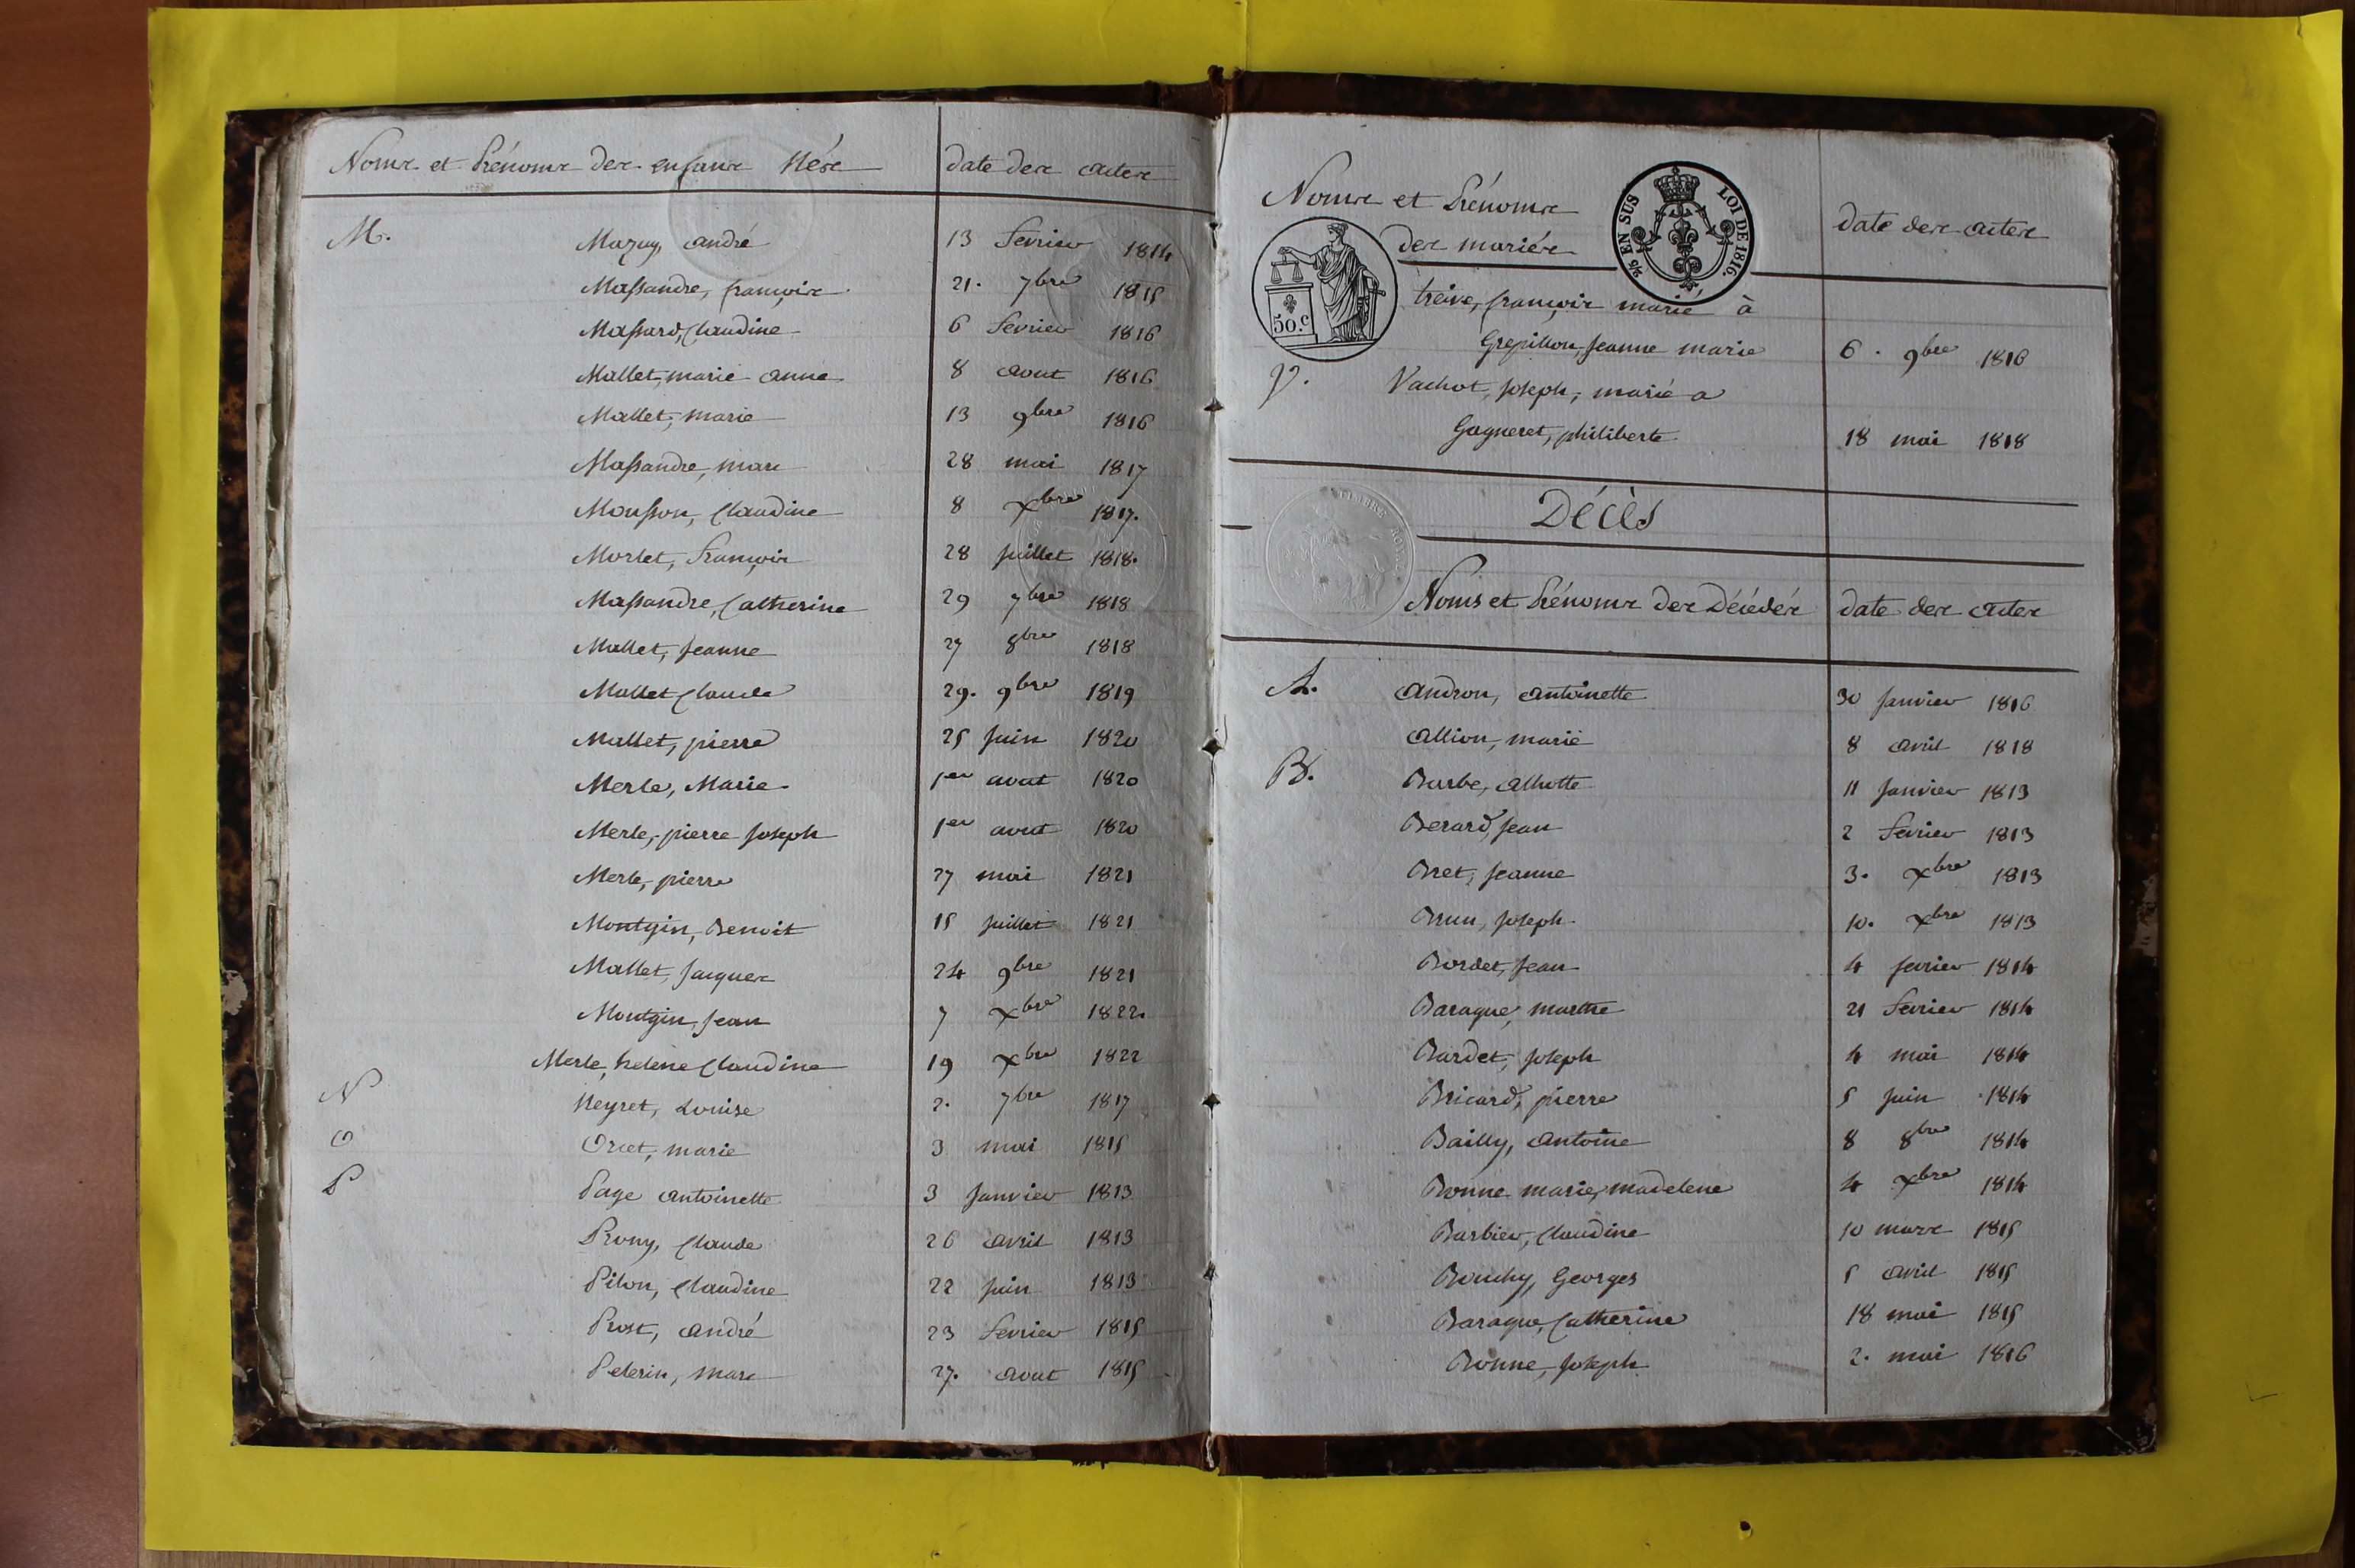 Noms et Prénoms des enfans Nés date des actes
M. Mazuy, andré 13 fevrier 1814
Massandre, françois 21. 7bre 1815
Massard, Claudine 6 fevrier 1816
Mallet, marie anne 8 aout 1816
Mallet, marie 13 9bre 1816
Massandre, marc 28 mai 1817
Mousson, Claudine 8 Xbre 1817.
Morlet, François 28 juillet 1818.
Massandre, Catherine 29 7bre 1818
Mallet, jeanne 27 8bre 1818
Mallet Claude 29. 9bre 1819
Mallet, pierre 25 juin 1820
Merle, Marie 1er aout 1820
Merle, pierre joseph 1er aout 1820
Merle, pierre 27 mai 1821
Montgin, Benoit 15 juillet 1821
Mallet, Jacques 24 9bre 1821
Montgin, Jean 7 Xbre 1822.
Merle, helene Claudine 19 Xbre 1822
N Neyret, Louise 2. 7bre 1817
O Orcet, marie 3 mai 1815
P Page antoinette 3 janvier 1813
Prony, Claude 26 avril 1813
Pilon, Claudine 22 juin 1813
Prost, andré 23 fevrier 1815
Pelerin, marc 27. aout 1815
Noms et Prénoms
des mariés date des actes
2/6 EN SUS LOI DE 1816.
50.c
treive, françois marié à
Grepillon, jeanne marie 6. 9bre 1816
V. Vachot, joseph, marié a
Gagneret, philiberte 18 mai 1818
Décès
TIMBRE ROYAL
Noms et Prénoms des Décédés date des actes
A. andron, antoinette 30 janvier 1816
allion, marie 8 avril 1818
B. Barbe, alhotte 11 janvier 1813
Berard, jean 2 fevrier 1813
Bret, jeanne 3. Xbre 1813
Brun, joseph 10. Xbre 1813
Bordet, jean 4 fevrier 1814
Baraque, marthe 21 fevrier 1814
Bardet, joseph 4 mai 1814
Bricard, pierre 5 juin 1814
Bailly, antoine 8 8bre 1814
Bonne marie, madelene 4 Xbre 1814
Barbier, Claudine 10 mars 1815
Bouchy, Georges 5 avril 1815
Baraque, Catherine 18 mai 1815
Bonne, joseph 2. mai 1816